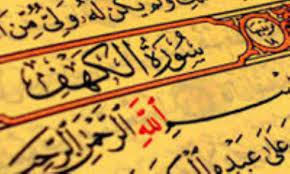 ولم يكن له ولي من
سُورَةُ الكَهْفِ
بسم اللهِ الرَّحْمَنِ الرَّحِيمِ
عَلَى عَبْدِهِ